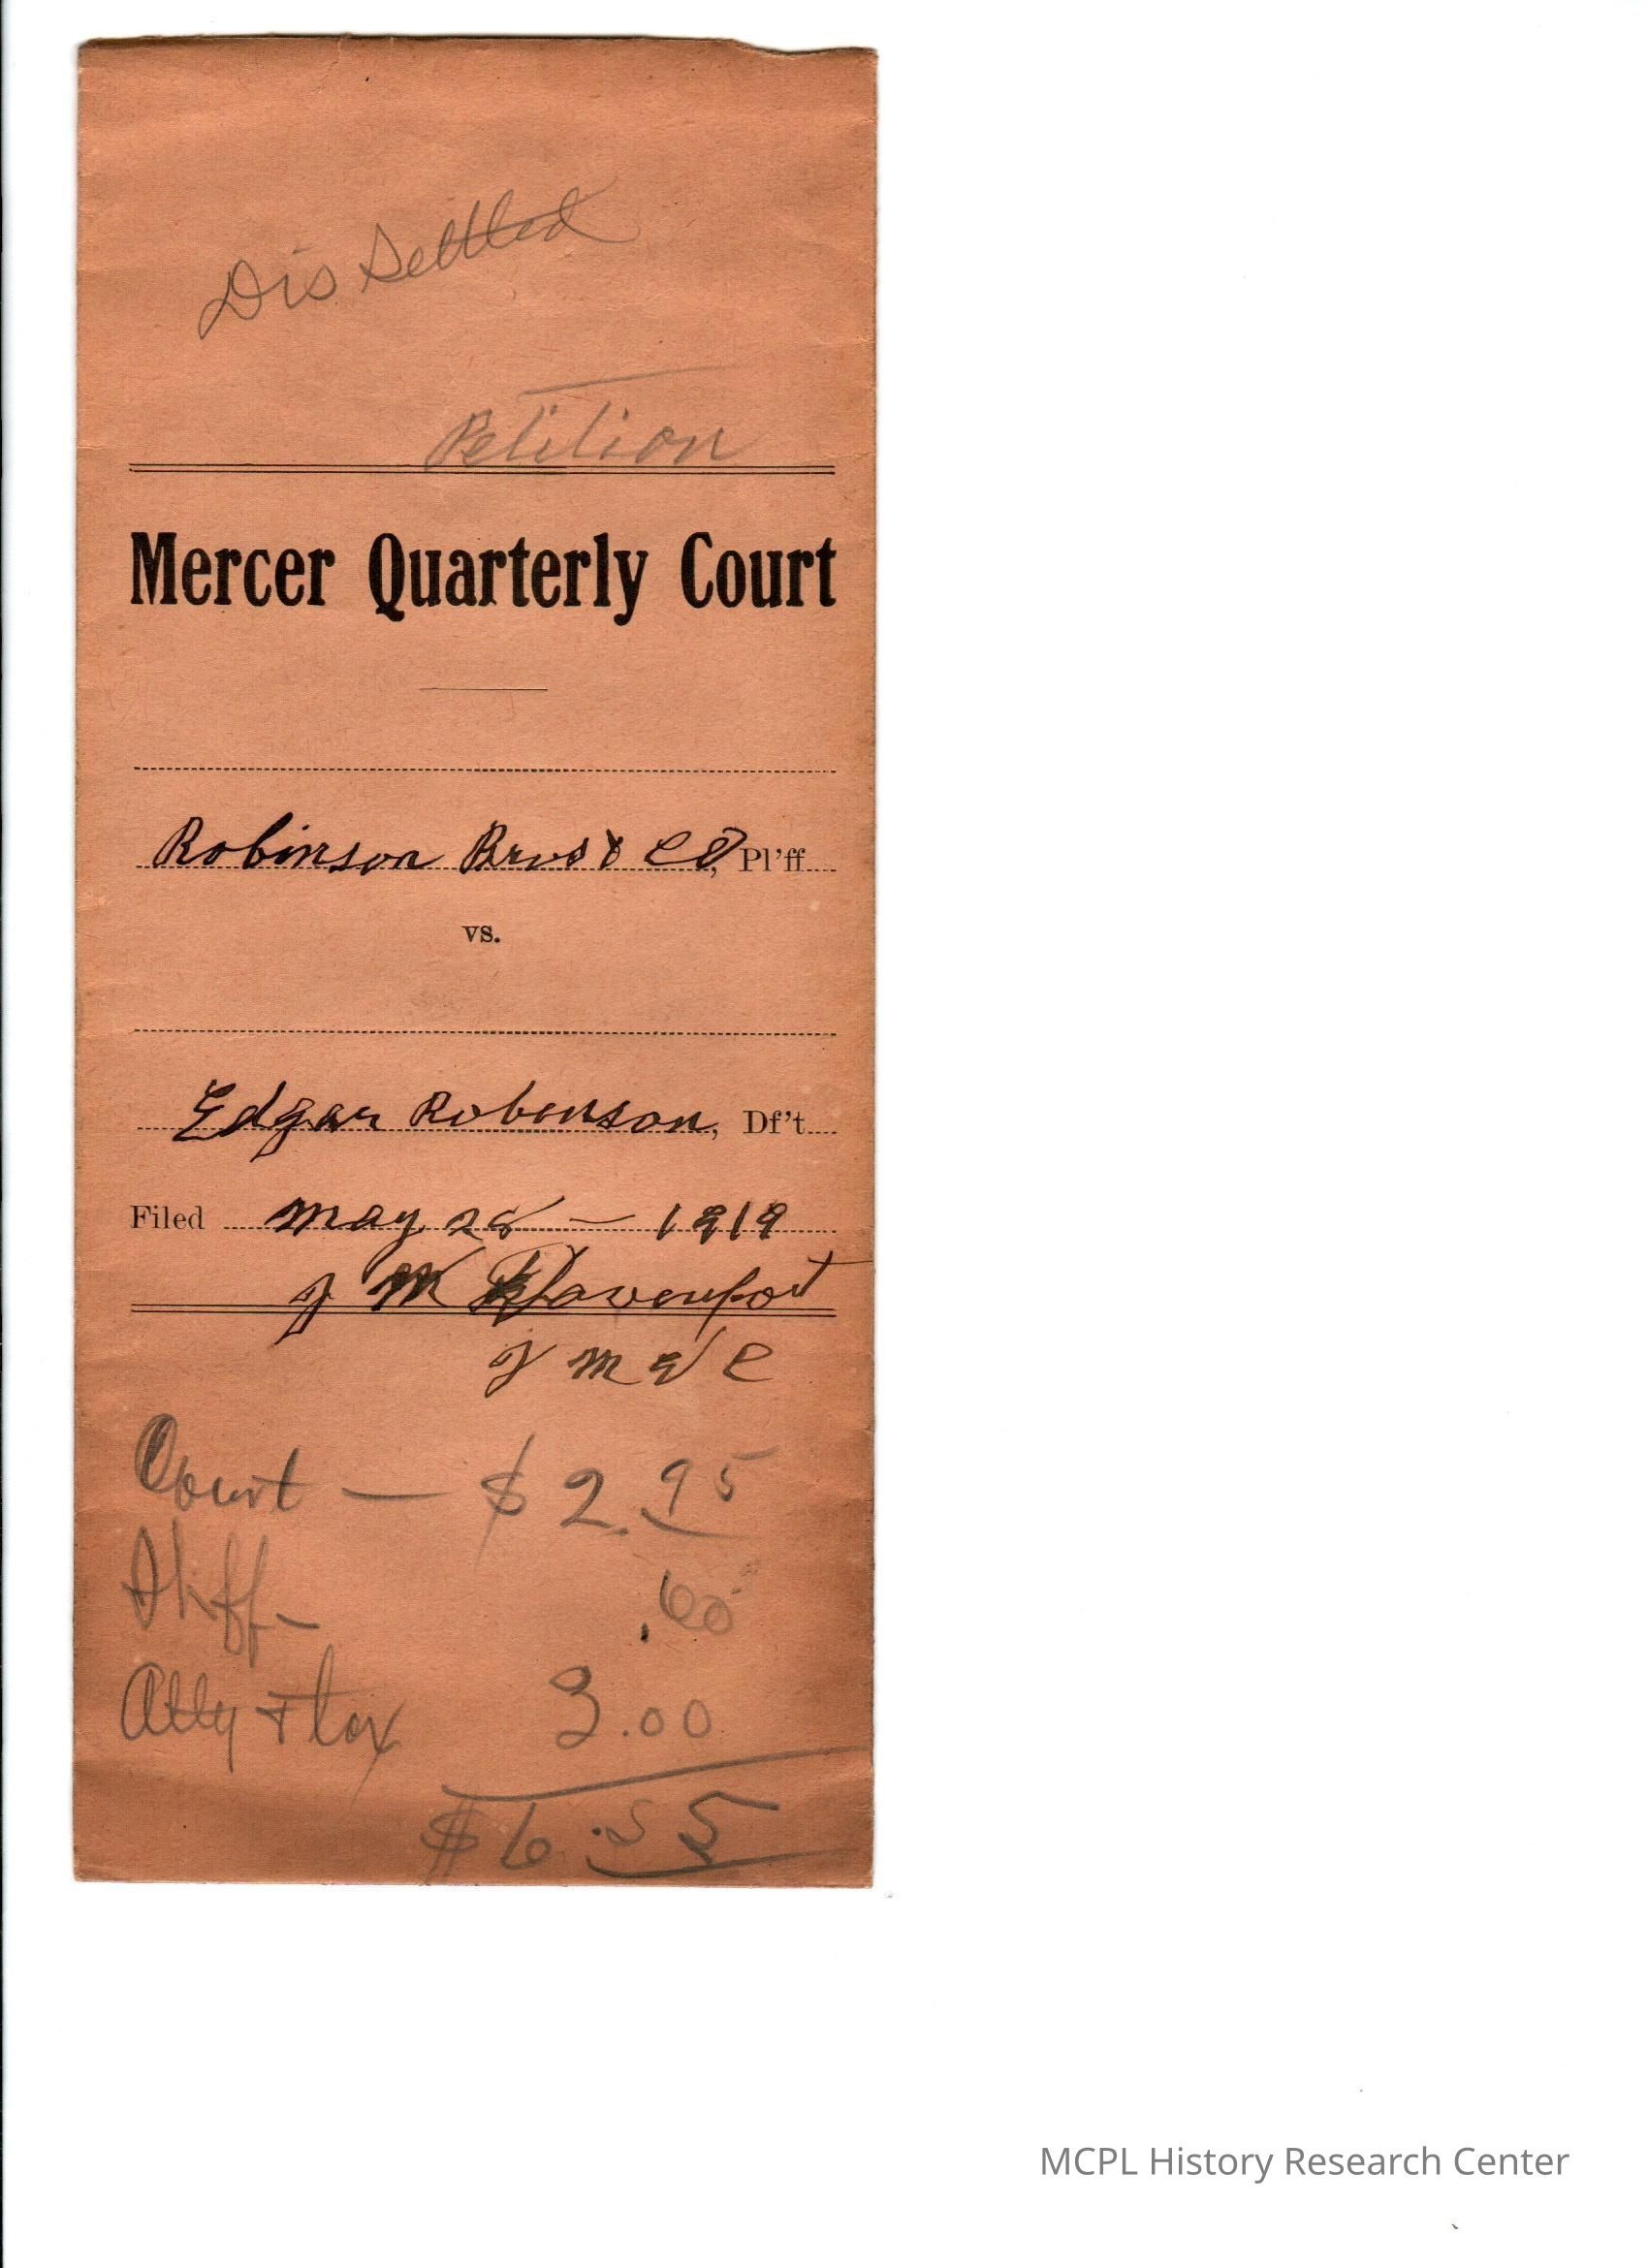 Dis Settled
Petition
Mercer Quarterly Court
Robinson Bros & Co, Pl'ff
vs.
Edgar Robenson, Df't
Filed May 28 — 1919
J M Davenport
Court — $2.95
Shff - .60
Atty & tax 3.00
$6.55
MCPL History Research Center